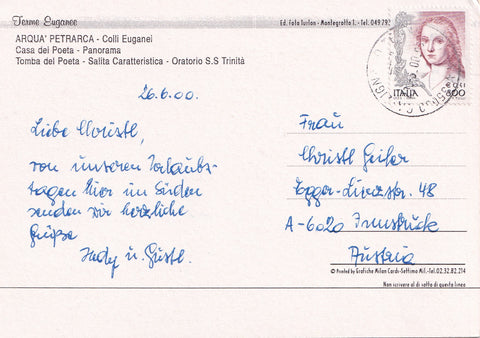 Terme Euganee
ARQUA' PETRARCA - Colli Euganei
Casa del Poeta - Panorama
Tomba del Poeta - Salita Caratteristica - Oratorio S.S Trinità
Ed. Foto Turlon - Montegrotto T. - Tel. 049 792
ITALIA
800
26.6.00.
Liebe Christl,
von unseren Urlaubs-
tagen hier im Süden
senden wir herzliche
Grüße
Hedy u. Gustl.
Frau
Christl Geiler
Egger-Lienzstr. 48
A-6020 Innsbruck
Austria
© Printed by Grafiche Milan Cards-Settimo Mil.-Tel.02.32.82.214
Non scrivere al di sotto di questa linea